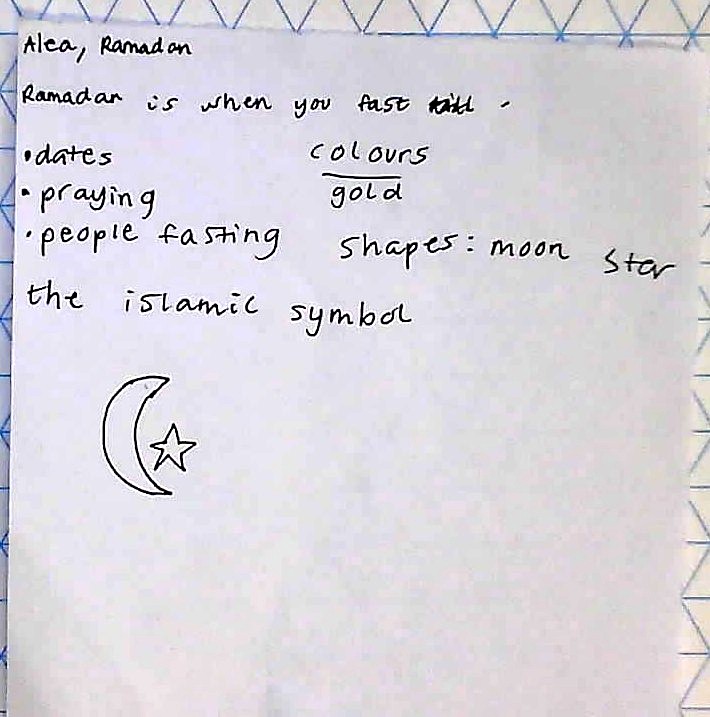 Alea, Ramadan
Ramadan is when you fast
•dates
• praying
• people fasting
colours
gold
shapes: moon star
the islamic symbol